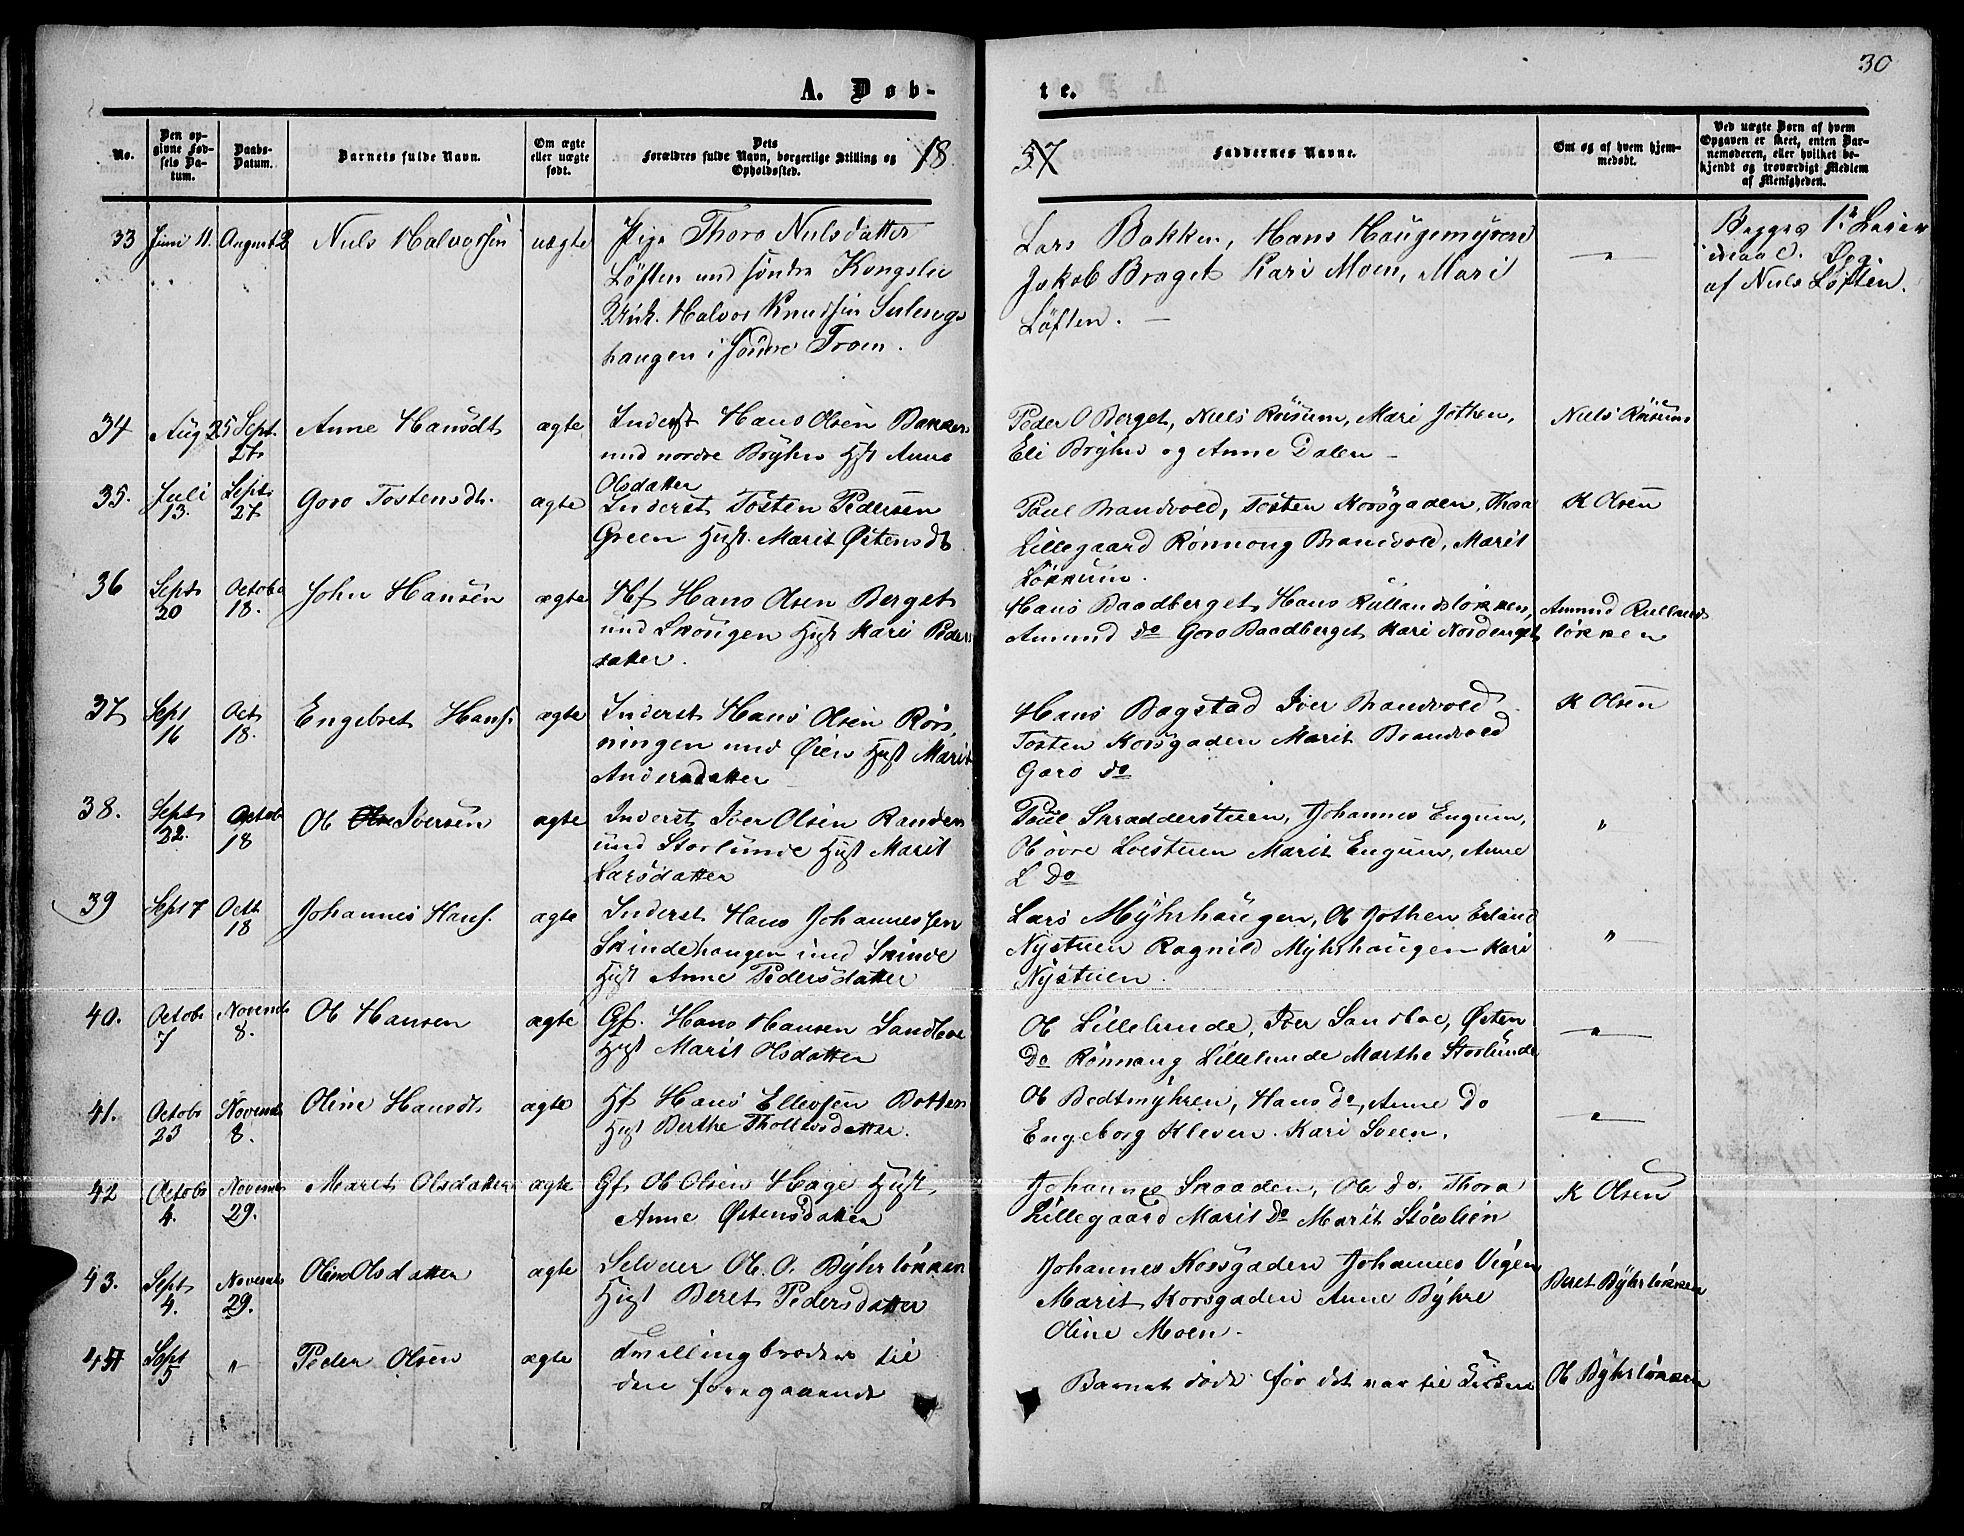 30
A. Døb-
te.
18
57
No.
Den op-
givne Fød-
sels Da-
tum.
Daabs-
Datum.
Barnets fulde Navn.
Om ægte
eller uægte
født.
Dets
Forældres fulde Navn, borgerlige Stilling og
Opholdssted.
Faddernes Navne.
Om og af hvem hjem-
medøbt.
Ved uægte Børn af hvem
Opgaven er skeet, enten Bar-
nemoderen, eller hvilket be-
kjendt og troværdigt Medlem
af Menigheden.
33 Juni 11. August 2 Nils Halvorsen uægte Pige Thoro Nilsdatter
Løften und søndre Kongslie
Unk. Halvor Knudsen
haugen i søndre Froen.
Lars Bakken, Hans Haugemyren
Jakob Braget Kari Moen, Mari
Løften. —
"
Begges 1ste Leier
maal. Opg.
af Niels Løften.
34 Aug 25 Sept 27 Anne Hansdt ægte Inderst Hans Olsen Bakken
und nordre Brÿhn Hst Anne
Olsdatter
Peder O Berget, Niels Röisum, Mari Jothen,
Eli Brÿhn og Anne Dalen —
Niels Röisum
35. Juli 13. Sept 27 Goro Tostensdt. ægte Inderst Tosten Pedersen
Green Hust. Marit Østensdt
Poul Brandvold, Tosten Korsgaden, Thora
Lillegaard Rönnong Brandvold, Marit
Løkkum.
K Olsen
36 Sept 20 October 18. John Hansen ægte Hf Hans Olsen Berget
und Skougen Hust Kari Peders
datter.
Hans Baadberget Hans Rullandsløkken,
Amund do Goro Baadberget Kari Nordenget
Amund Rullands
løkken
37 Sept 16 Oct 18. Engebret Hans. ægte Inderst Hans Olsen Rös
ningen und Øien Hust Marit
Andersdatter
Hans Bagstad Iver Brandvold
Tosten Korsgaden Marit Brandvold
Goro do
K Olsen
38. Sept 22. Octob 18 Ol Iversen ægte Inderst Iver Olsen Randen
und Storlunde Hust Marit
Larsdatter
Poul Skradderstuen, Johannes Engum,
Ol övre Loestuen Marit Engum, Anne
L Do
"
39 Sept 7 Oct 18 Johannes Hans. ægte Inderst Hans Johannessen
Skindehaugen und Skinde
Hust Anne Pedersdatter
Lars Mÿhrhaugen, Ol Jothen Erland
Nystuen Ragnild Mÿhrhaugen Kari
Nystuen
"
40. Octob 7 Novemb 8. Ol Hansen ægte Gf. Hans Hansen Sandboe
Hust Marit Olsdatter
Ol Lillelunde, Iver Sandboe, Østen
Do Rönnong Lillelunde Marthe Storlunde
"
41. Octob 23 Novemb 8. Oline Hansdt ægte Hf Hans Ellevsen Botten
Hust Berthe Thollevsdatter.
Ol Bedtmÿhren, Hans do, Anne Do
Engeborg Kleven. Kari Sveen.
"
42 Octob 4. Novemb 29. Marit Olsdatter ægte Gf Ol Olsen Hage Hust
Anne Østensdatter
Johannes Skaaden, Ol Do. Thora
Lillegaard Marit Do Marit Stöeslien
K Olsen
43. Sept 4. Novemb 29. Oline Olsdatter ægte Selveier Ol. O. Bÿhrløkken
Hust Beret Pedersdatter
Johannes Korsgaden Johannes Vigen
Marit Korsgaden Anne Bÿhre
Oline Moen.
Beret Bÿhrløkken
44 Sept 5 " Peder Olsen ægte Tvillingbroder til
den foregaaende
Barnet døde før det var til Kirken
Ol Bÿhrløkken